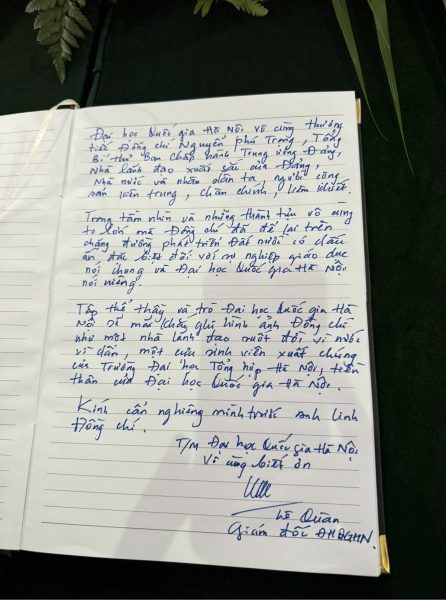 Đại học Quốc gia Hà Nội vô cùng thương
tiếc Đồng chí Nguyễn Phú Trọng, Tổng
Bí thư Ban Chấp hành Trung ương Đảng,
Nhà lãnh đạo xuất sắc của Đảng,
Nhà nước và nhân dân ta, người cộng
sản kiên trung, chân chính, liêm khiết.
Trong tầm nhìn và những thành tựu vô cùng
to lớn mà Đồng chí đã để lại trên
chặng đường phát triển Đất nước có dấu
ấn đặc biệt đối với sự nghiệp giáo dục
nói chung và Đại học Quốc gia Hà Nội
nói riêng.
Tập thể thầy và trò Đại học Quốc gia Hà
Nội sẽ mãi khắc ghi hình ảnh Đồng chí
như một nhà lãnh đạo suốt đời vì nước
vì dân, một cựu sinh viên xuất chúng
của Trường Đại học Tổng hợp Hà Nội, tiền
thân của Đại học Quốc gia Hà Nội.
Kính cẩn nghiêng mình trước anh linh
Đồng chí.
T/M Đại học Quốc gia Hà Nội
Vô cùng biết ơn
Lê Quân
Giám đốc ĐHQGHN.